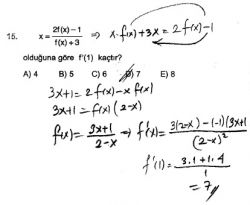 15. x = 2f(x) − 1 / f(x) + 3 ⇒ x·f(x) + 3x = 2f(x) − 1
olduğuna göre f'(1) kaçtır?
A) 4 B) 5 C) 6 D) 7 E) 8
3x+1 = 2f(x) − x f(x)
3x+1 = f(x) (2−x)
f(x) = 3x+1 / 2−x ⇒ f'(x) = 3(2−x) − (−1)(3x+1) / (2−x)²
f'(1) = 3.1 + 1.4 / 1
= 7